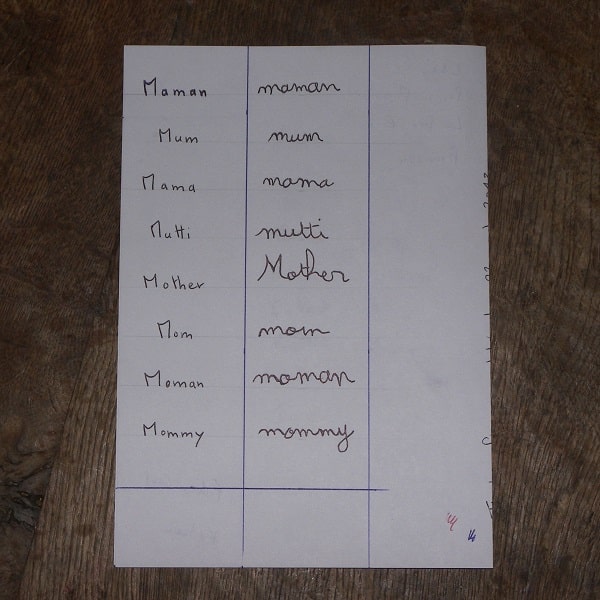 Maman maman
Mum mum
Mama mama
Mutti mutti
Mother Mother
Mom mom
Moman moman
Mommy mommy